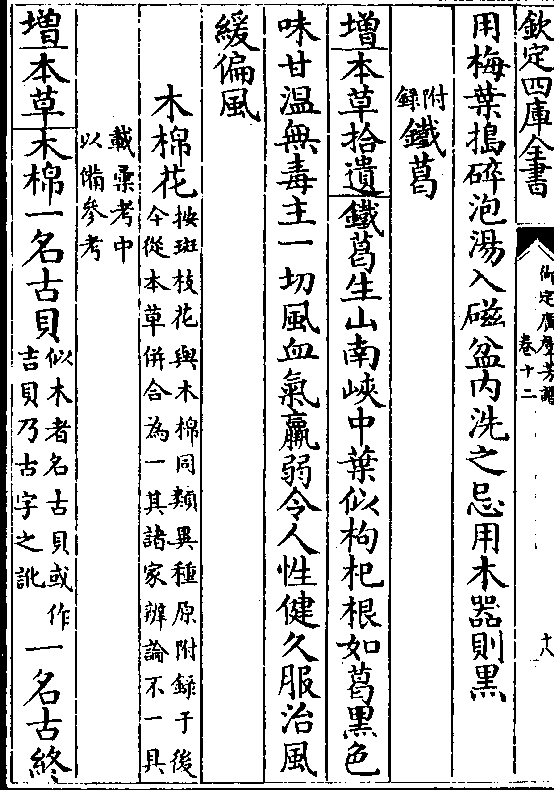 欽定四庫全書
御定廣羣芳譜
卷十二
十八
用梅葉搗碎泡湯入磁盆內洗之忌用木器則黑
附錄鐵葛
增本草拾遺鐵葛生山南峽中葉似枸杞根如葛黑色
味甘溫無毒主一切風血氣羸弱令人性健久服治風
緩偏風
木棉花按斑枝花與木棉同類異種原附録于後今從本草併合為一其諸家辨論不一具
載彚考中以備參考
增本草木棉一名古貝似木者名古貝或作吉貝乃古字之訛一名古終